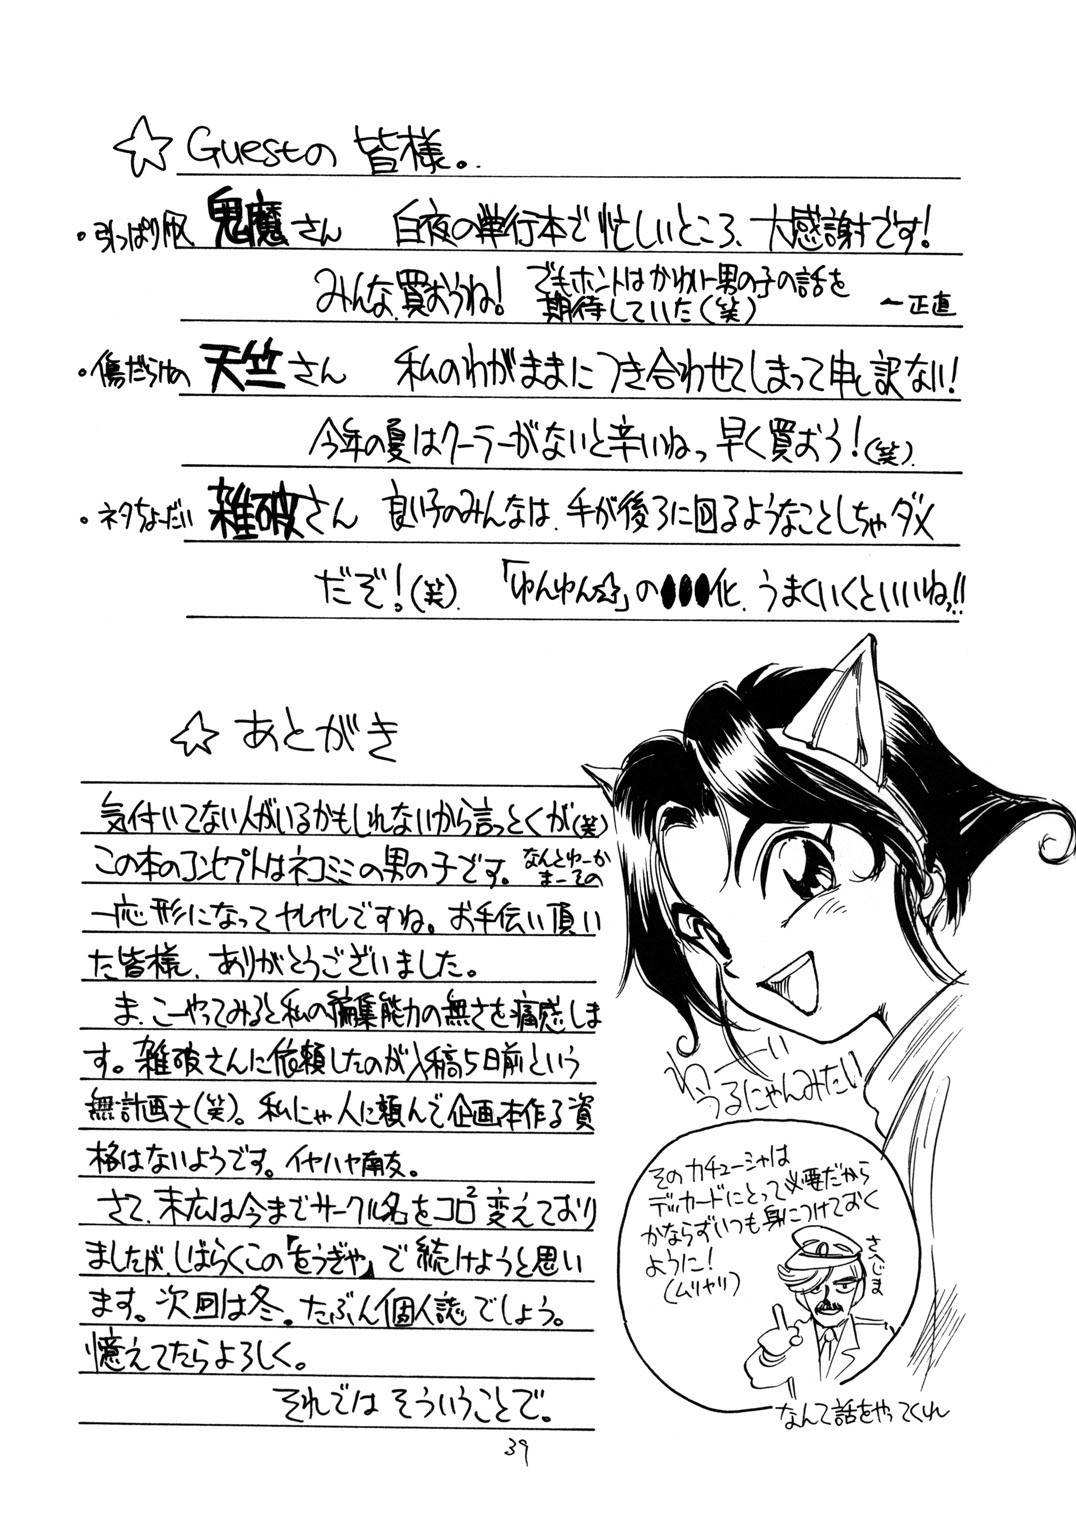 ☆Guestの皆様。
・引っぱり凧 鬼魔さん 白夜の単行本で忙しいところ、大感謝です!
みんな、買おうね! でもホントはかわいー男の子の話を
期待していた(笑) ～正直
・傷だらけの 天竺さん 私のわがままにつき合わせてしまって申し訳ない!
今年の夏はクーラーがないと辛いねっ 早く買おう!(笑)
・ネタちょーだい 雑破さん 良い子のみんなは、手が後ろに回るようなことしちゃダメ
だぞ!(笑) 「ゆんゆん☆」の●●●化、うまくいくといいねっ!!
☆あとがき
気付いてない人がいるかもしれないから言っとくが(笑)
この本のコンセプトはネコミミの男の子です。なんとゆーか
まーその
一応形になってヤレヤレですね。お手伝い頂い
た皆様、ありがとうございました。
ま、こーやってみると私の編集能力の無さを痛感しま
す。雑破さんに依頼したのが入稿5日前という
無計画さ(笑)。私にゃ人に頼んで企画本作る資
格はないようです。イヤハヤ南友。
さて、末広は今までサークル名をコロ2変えており
ましたが、しばらくこの「をうぎや」で続けようと思い
ます。次回は冬。たぶん個人誌でしょう。
憶えてたらよろしく。
それでは そういうことで。
わーい
うるにゃんみたい
そのカチューシャは
デッカードにとって必要だから
かならずいつも身につけておく
ように!
(ムリヤリ)
さえじま
なんて話をやってくれ
39